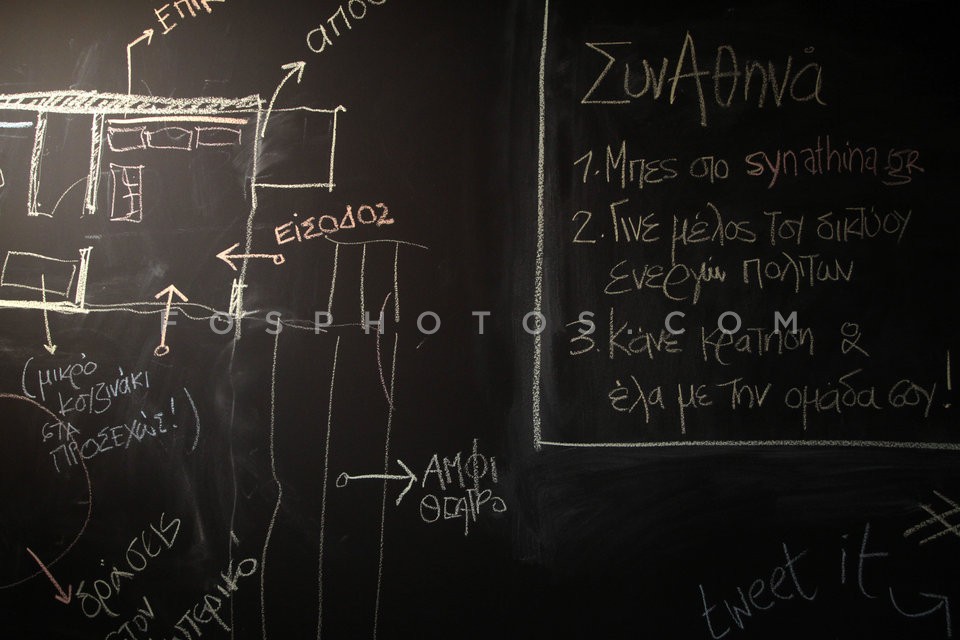 ΣυνΑθηνά
1. Μπες στο synathina.gr
2. Γίνε μέλος του δικτύου
ενεργών πολιτών
3. Κάνε κράτηση &
έλα με την ομάδα σου!
ΕΙΣΟΔΟΣ
(μικρό
κουζινάκι
στα
ΠΡΟΣΕΧΩΣ!)
ΑΜΦΙ
ΘΕΑΤΡΟ
δράσεις
στον
tweet it
#
FOSPHOTOS.COM